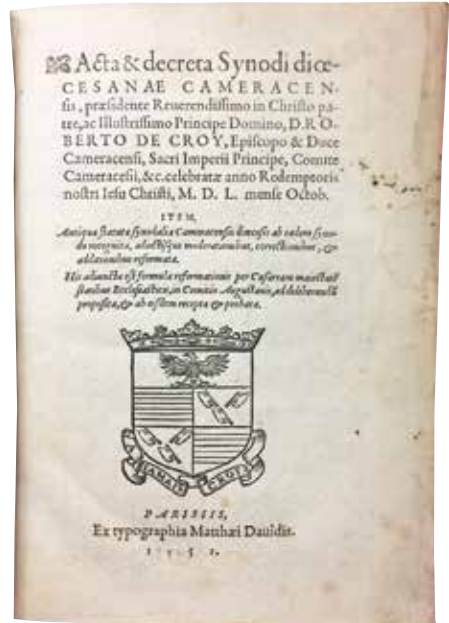 Acta & decreta Synodi diœ-
CESANAE CAMERACEN-
sis, præsidente Reuerendissimo in Christo pa-
tre, ac Illustrissimo Principe Domino, D. RO-
BERTO DE CROY, Episcopo & Duce
Cameracensi, Sacri Imperii Principe, Comite
Cameracesii, &c. celebratæ anno Redemptoris
nostri Iesu Christi, M. D. L. mense Octob.
ITEM,
Antiqua statuta synodalia Cameracensis diœcesis ab eadem syno-
do recognita, adiectisque moderationibus, correctionibus, &
additionibus reformata.
His adiuncta est formula reformationis per Cæsaream maiestatē
statibus Ecclesiasticis, in Comitiis Augustanis, ad deliberandū
proposita, & ab eisdem recepta & probata.
A IAMAIS CROY
PARISIIS,
Ex typographia Matthæi Dauidis.
1551.